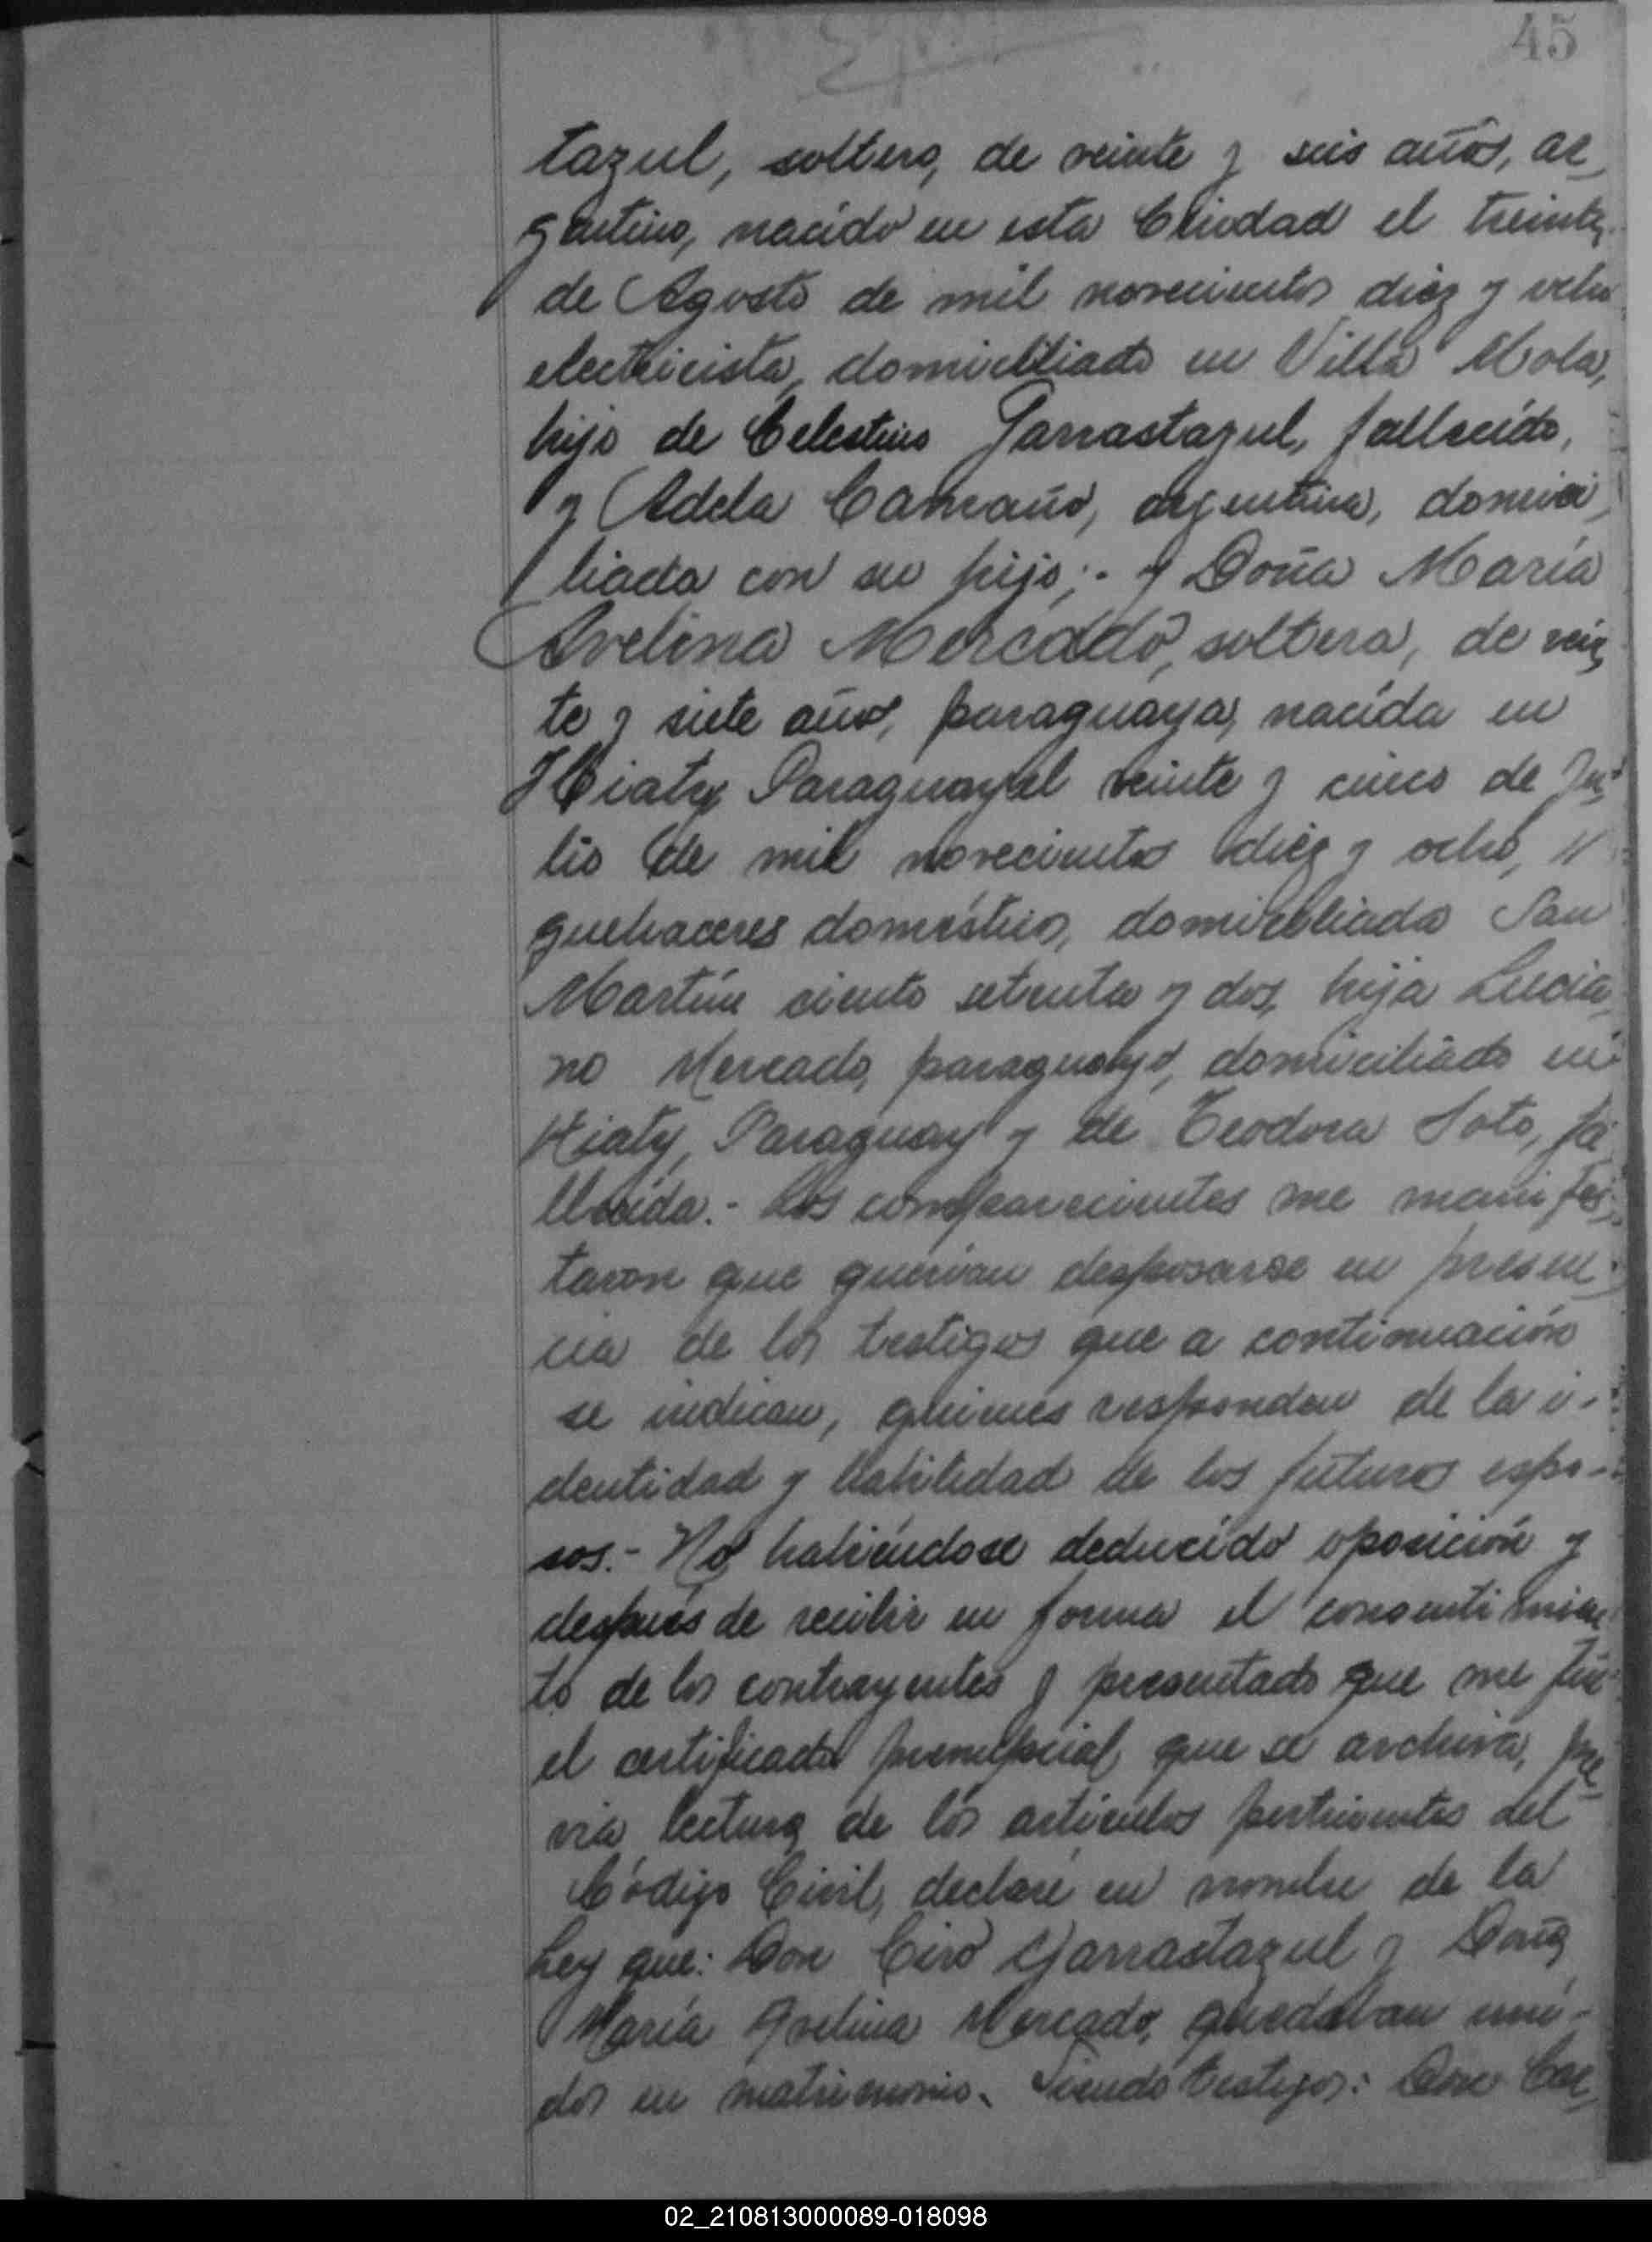 45
tazul, soltero, de veinte y seis años, ar-
gentino, nacido en esta Ciudad el treinta
de Agosto de mil novecientos diez y ocho
electricista, domicilliado en Villa Mola,
hijo de Celestino Garrastazul, fallecido,
y Adela Camaño, argentina, domici-
liada con su hijo; - y Doña María
Avelina Mercado, soltera, de vein-
te y siete años, paraguaya, nacida en
Hiaty Paraguay el veinte y cinco de Ju-
lio de mil novecientos diez y ocho,
quehaceres domésticos, domicilliada San
Martín ciento setenta y dos, hija Lucia-
no Mercado, paraguayo, domiciliado en
Hiaty, Paraguay y de Teodora Soto, fa-
llecida. - Los comparecientes me manifes-
taron que querían desposarse en presen-
cia de los testigos que a continuación
se indican, quienes responden de la i-
dentidad y habilidad de los futuros espo-
sos. - No habiéndose deducido oposición y
después de recibir en forma el consentimien-
to de los contrayentes y presentado que me fué
el certificado prenupcial, que se archiva, pre-
via lectura de los artículos pertinentes del
Código Civil, declaré en nombre de la
Ley que: Don Ciro Garrastazul y Doña
María Avelina Mercado, quedaban uni-
dos en matrimonio. Siendo testigos: Don Car-
02_210813000089-018098